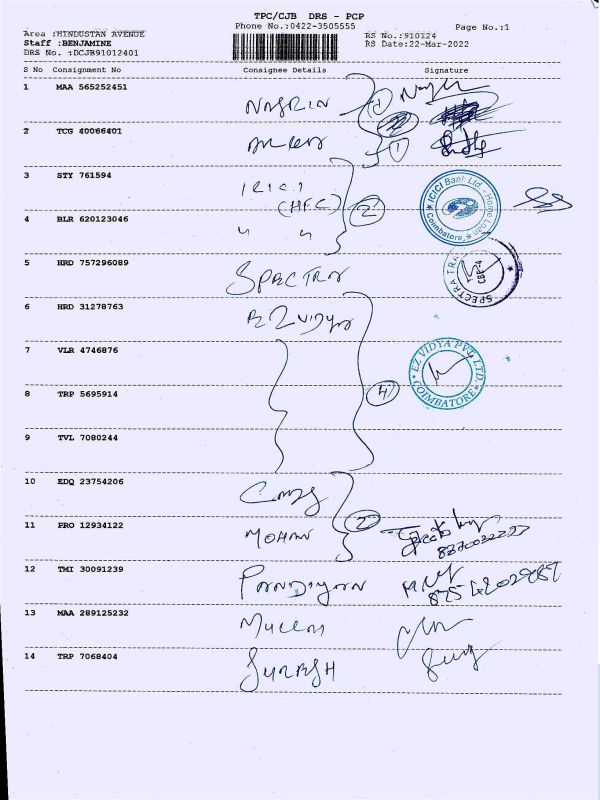 TPC/CJB DRS - PCP
Phone No.:0422-3505555
Page No.:1
Area :HINDUSTAN AVENUE
RS No.:910124
Staff :BENJAMINE
RS Date:22-Mar-2022
DRS No. :DCJB91012401
S No Consignment No Consignee Details Signature
1 MAA 565252451 NASRIN
2 TCG 40066401
1
3 STY 761594 ICICI
(HFC) 2
4 BLR 620123046 " "
ICICI Bank Ltd - Home Loan
Coimbatore
5 HRD 757296089 SPECTRA
SPECTRA TRA
CBE-4
6 HRD 31278763 EZ Vidya
7 VLR 4746876
EZ VIDYA PVT. LTD.
COIMBATORE
8 TRP 5695914 4
9 TVL 7080244
10 EDQ 23754206
2
11 PRO 12934122 MOHAN
12 TMI 30091239 PANDIYAN
13 MAA 289125232
14 TRP 7068404 SURESH